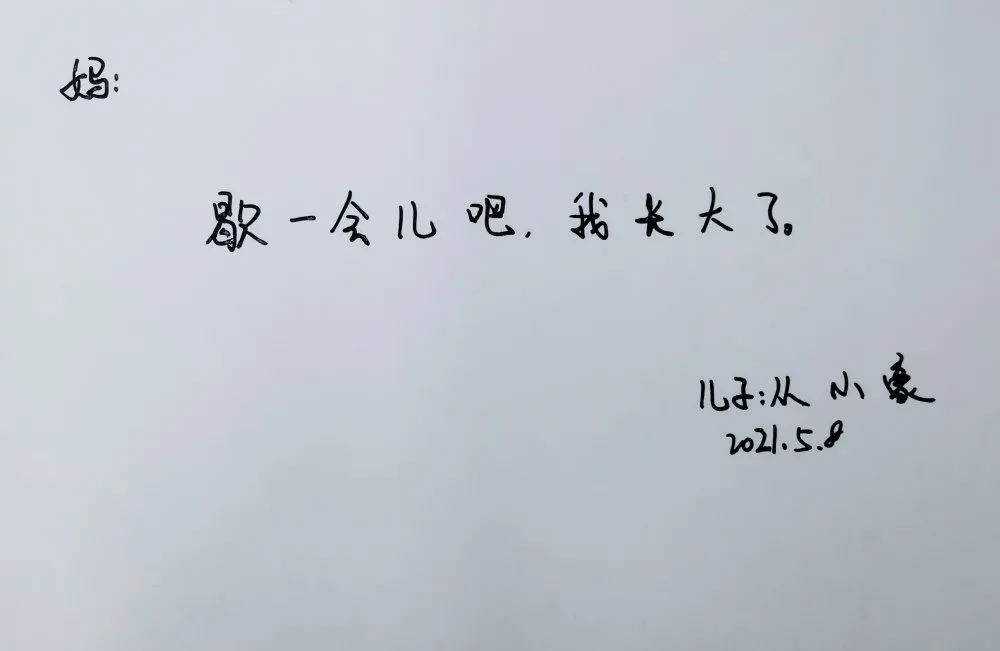 妈:
歇一会儿吧,我长大了。
儿子:从小家
2021.5.8